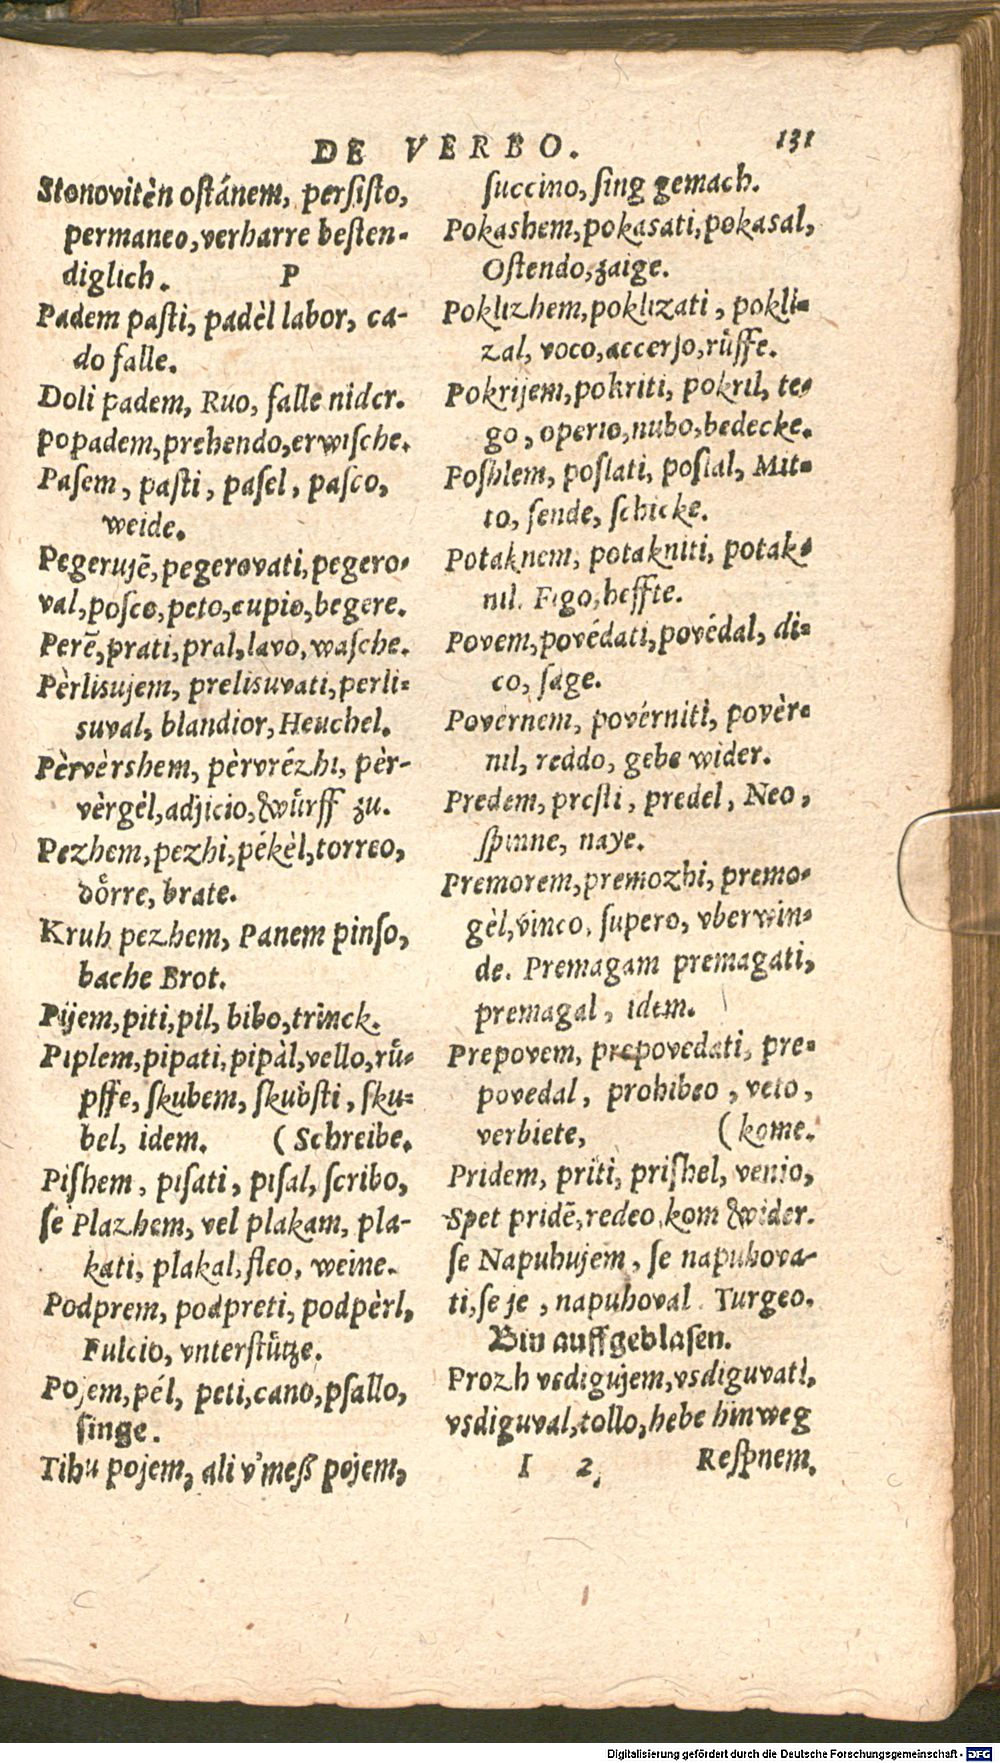 DE VERBO. 131
Stonovitèn oſtánem, perſiſto,
permaneo, verharre beſten-
diglich. P
Padem paſti, padèl labor, ca-
do falle.
Doli padem, Ruo, falle nider.
popadem, prehendo, erwiſche.
Paſem, paſti, paſel, paſco,
weide.
Pegerujẽ, pegerovati, pegero-
val, poſco, peto, cupio, begere.
Perẽ, prati, pral, lavo, waſche.
Pèrliſujem, preliſuvati, perli-
ſuval, blandior, Heuchel.
Pèrvèrshem, pèrvrézhi, pèr-
vèrgèl, adjicio, Wuͤrff zu.
Pezhem, pezhi, pékèl, torreo,
doͤrre, brate.
Kruh pezhem, Panem pinſo,
bache Brot.
Pijem, piti, pil, bibo, trinck.
Piplem, pipati, pipàl, vello, ruͤ-
pffe, ſkubem, ſkubſti, ſku-
bel, idem. (Schreibe.
Piſhem, piſati, piſal, ſcribo,
ſe Plazhem, vel plakam, pla-
kati, plakal, fleo, weine.
Podprem, podpreti, podpèrl,
Fulcio, vnterſtuͤtze.
Pojem, pél, peti, cano, pſallo,
ſinge.
Tihu pojem, ali v'meß pojem,
ſuccino, ſing gemach.
Pokashem, pokaſati, pokaſal,
Oſtendo, zaige.
Poklizhem, poklizati, pokli-
zal, voco, accerſo, ruͤffe.
Pokrijem, pokriti, pokril, te-
go, operio, nubo, bedecke.
Poſhlem, poslati, poslal, Mit-
to, ſende, ſchicke.
Potaknem, potakniti, potak-
nil. Figo, heffte.
Povem, povédati, povédal, di-
co, ſage.
Povernem, povérniti, povèr-
nil, reddo, gebe wider.
Predem, preſti, predel, Neo,
ſpinne, naye.
Premorem, premozhi, premo-
gèl, vinco, ſupero, vberwin-
de. Premagam premagati,
premagal, idem.
Prepovem, prepovedati, pre-
povedal, prohibeo, veto,
verbiete, (kome.
Pridem, priti, priſhel, venio,
Spet pridẽ, redeo, kom wider.
ſe Napuhujem, ſe napuhova-
ti, ſe je, napuhoval. Turgeo.
Bin auffgeblaſen.
Prozh vsdigujem, vsdiguvati,
vsdiguval, tollo, hebe hinweg
I 2. Reſpnem.
Digitalisierung gefördert durch die Deutsche Forschungsgemeinschaft - DFG